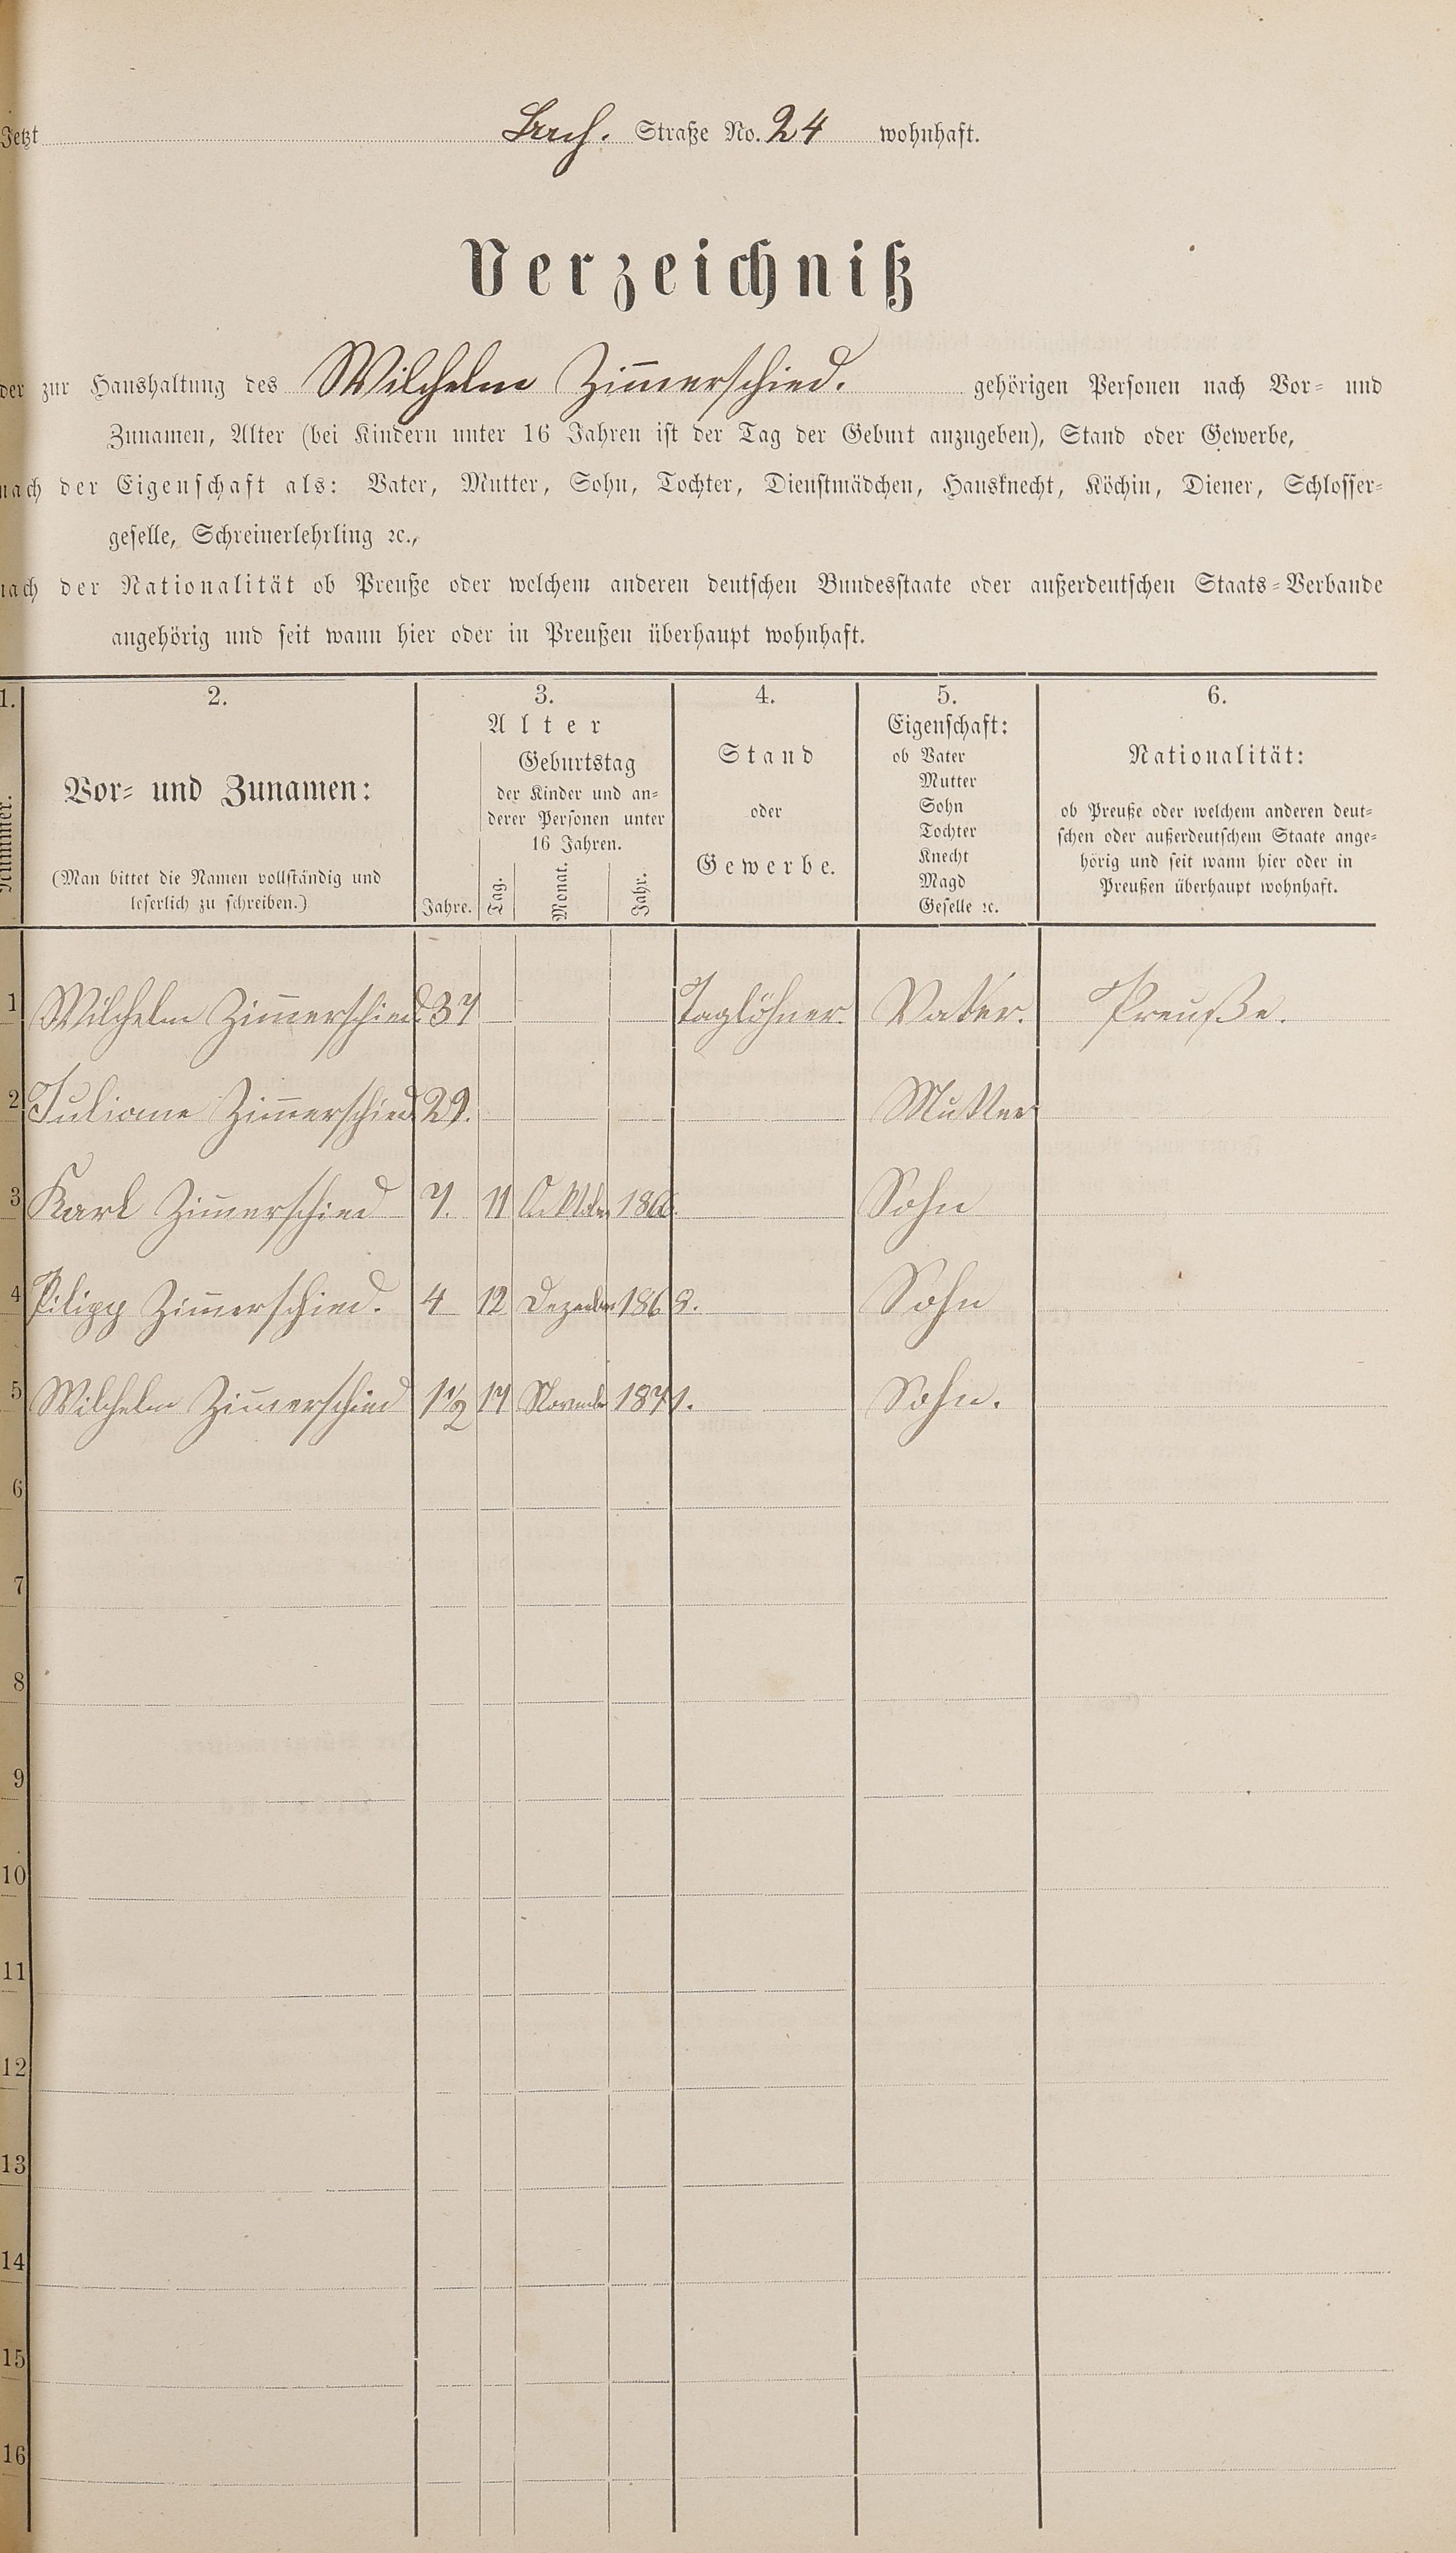 Jetzt Bach. Straße No. 24 wohnhaft.
Verzeichniß
der zur Haushaltung des Wilhelm Zimmerschied. gehörigen Personen nach Vor- und
Zunamen, Alter (bei Kindern unter 16 Jahren ist der Tag der Geburt anzugeben), Stand oder Gewerbe,
nach der Eigenschaft als: Vater, Mutter, Sohn, Tochter, Dienstmädchen, Hausknecht, Köchin, Diener, Schlosser-
geselle, Schreinerlehrling ꝛc.,
nach der Nationalität ob Preuße oder welchem anderen deutschen Bundesstaate oder außerdeutschen Staats-Verbande
angehörig und seit wann hier oder in Preußen überhaupt wohnhaft.
1.
Nummer.
2.
Vor- und Zunamen:
(Man bittet die Namen vollständig und
leserlich zu schreiben.)
3.
Alter
Jahre.
Geburtstag
der Kinder und an-
derer Personen unter
16 Jahren.
Tag.
Monat.
Jahr.
4.
Stand
oder
Gewerbe.
5.
Eigenschaft:
ob Vater
Mutter
Sohn
Tochter
Knecht
Magd
Geselle ꝛc.
6.
Nationalität:
ob Preuße oder welchem anderen deut-
schen oder außerdeutschem Staate ange-
hörig und seit wann hier oder in
Preußen überhaupt wohnhaft.
1 Wilhelm Zim̄erschied. 37 Taglöhner. Vater. Preuße.
2 Juliane Zim̄erschied 29. Mutter
3 Karl Zim̄erschied 7. 11 Oktober 1866. Sohn
4 Pilipp Zim̄erschied. 4 12 Dezember 1868. Sohn
5 Wilhelm Zim̄erschied 1½ 17 November 1871. Sohn.
6
7
8
9
10
11
12
13
14
15
16